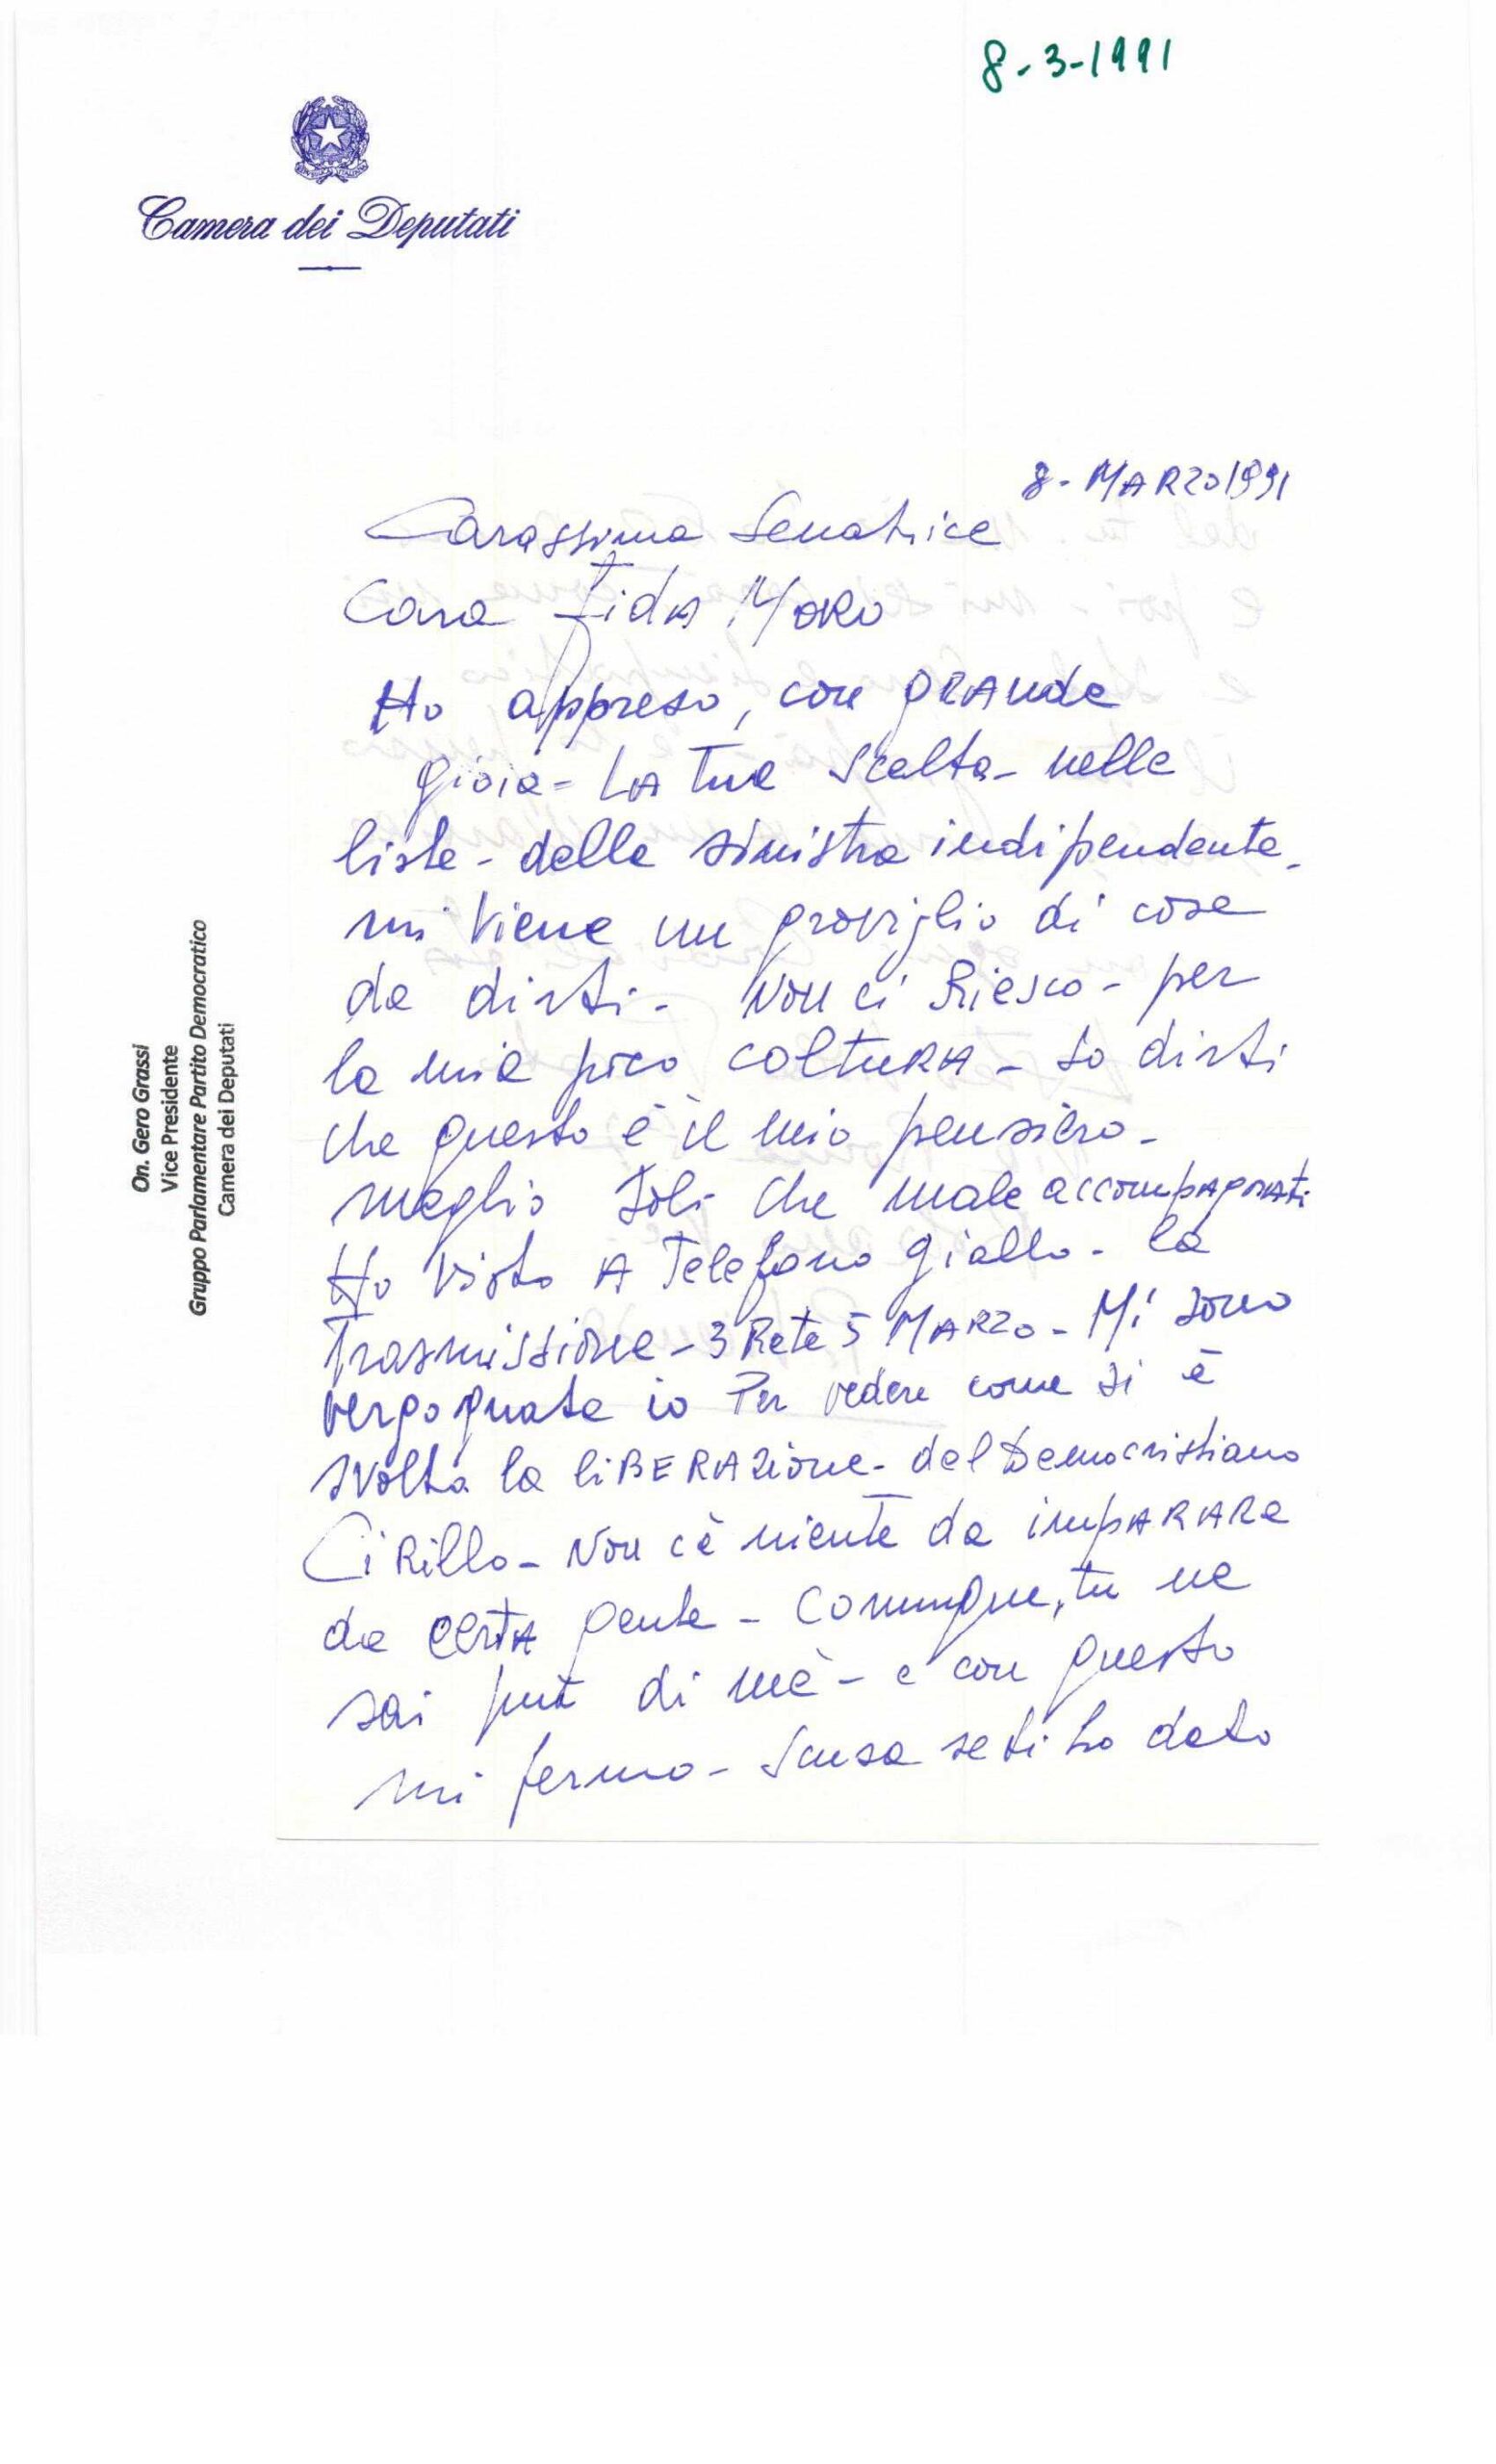 8-3-1991
Camera dei Deputati
On. Gero Grassi
Vice Presidente
Gruppo Parlamentare Partito Democratico
Camera dei Deputati
8-MARZO 1991
Carassima Senatrice
Cara Fida MORO
Ho appreso, con GRANde
gioia - LA Tua Scelta - nelle
liste - della sinistra indipendente -
mi Viene un groviglio di cose
da dirti - NON ci Riesco - per
la mia poco COLTURA - so dirti
che questo è il mio pensiero -
meglio soli che male accompAgnAti
Ho visto A Telefono giallo - la
Trasmissione - 3 Rete 5 MARZO - Mi sono
vergognata io Per vedere come si è
svolta la liBERAZione - del Democristiano
CiRillo - NoN c'è niente da impARARe
da CERTA gente - Comunque, tu ne
sai più di mè - e con questo
mi fermo - Scusa se ti ho dato